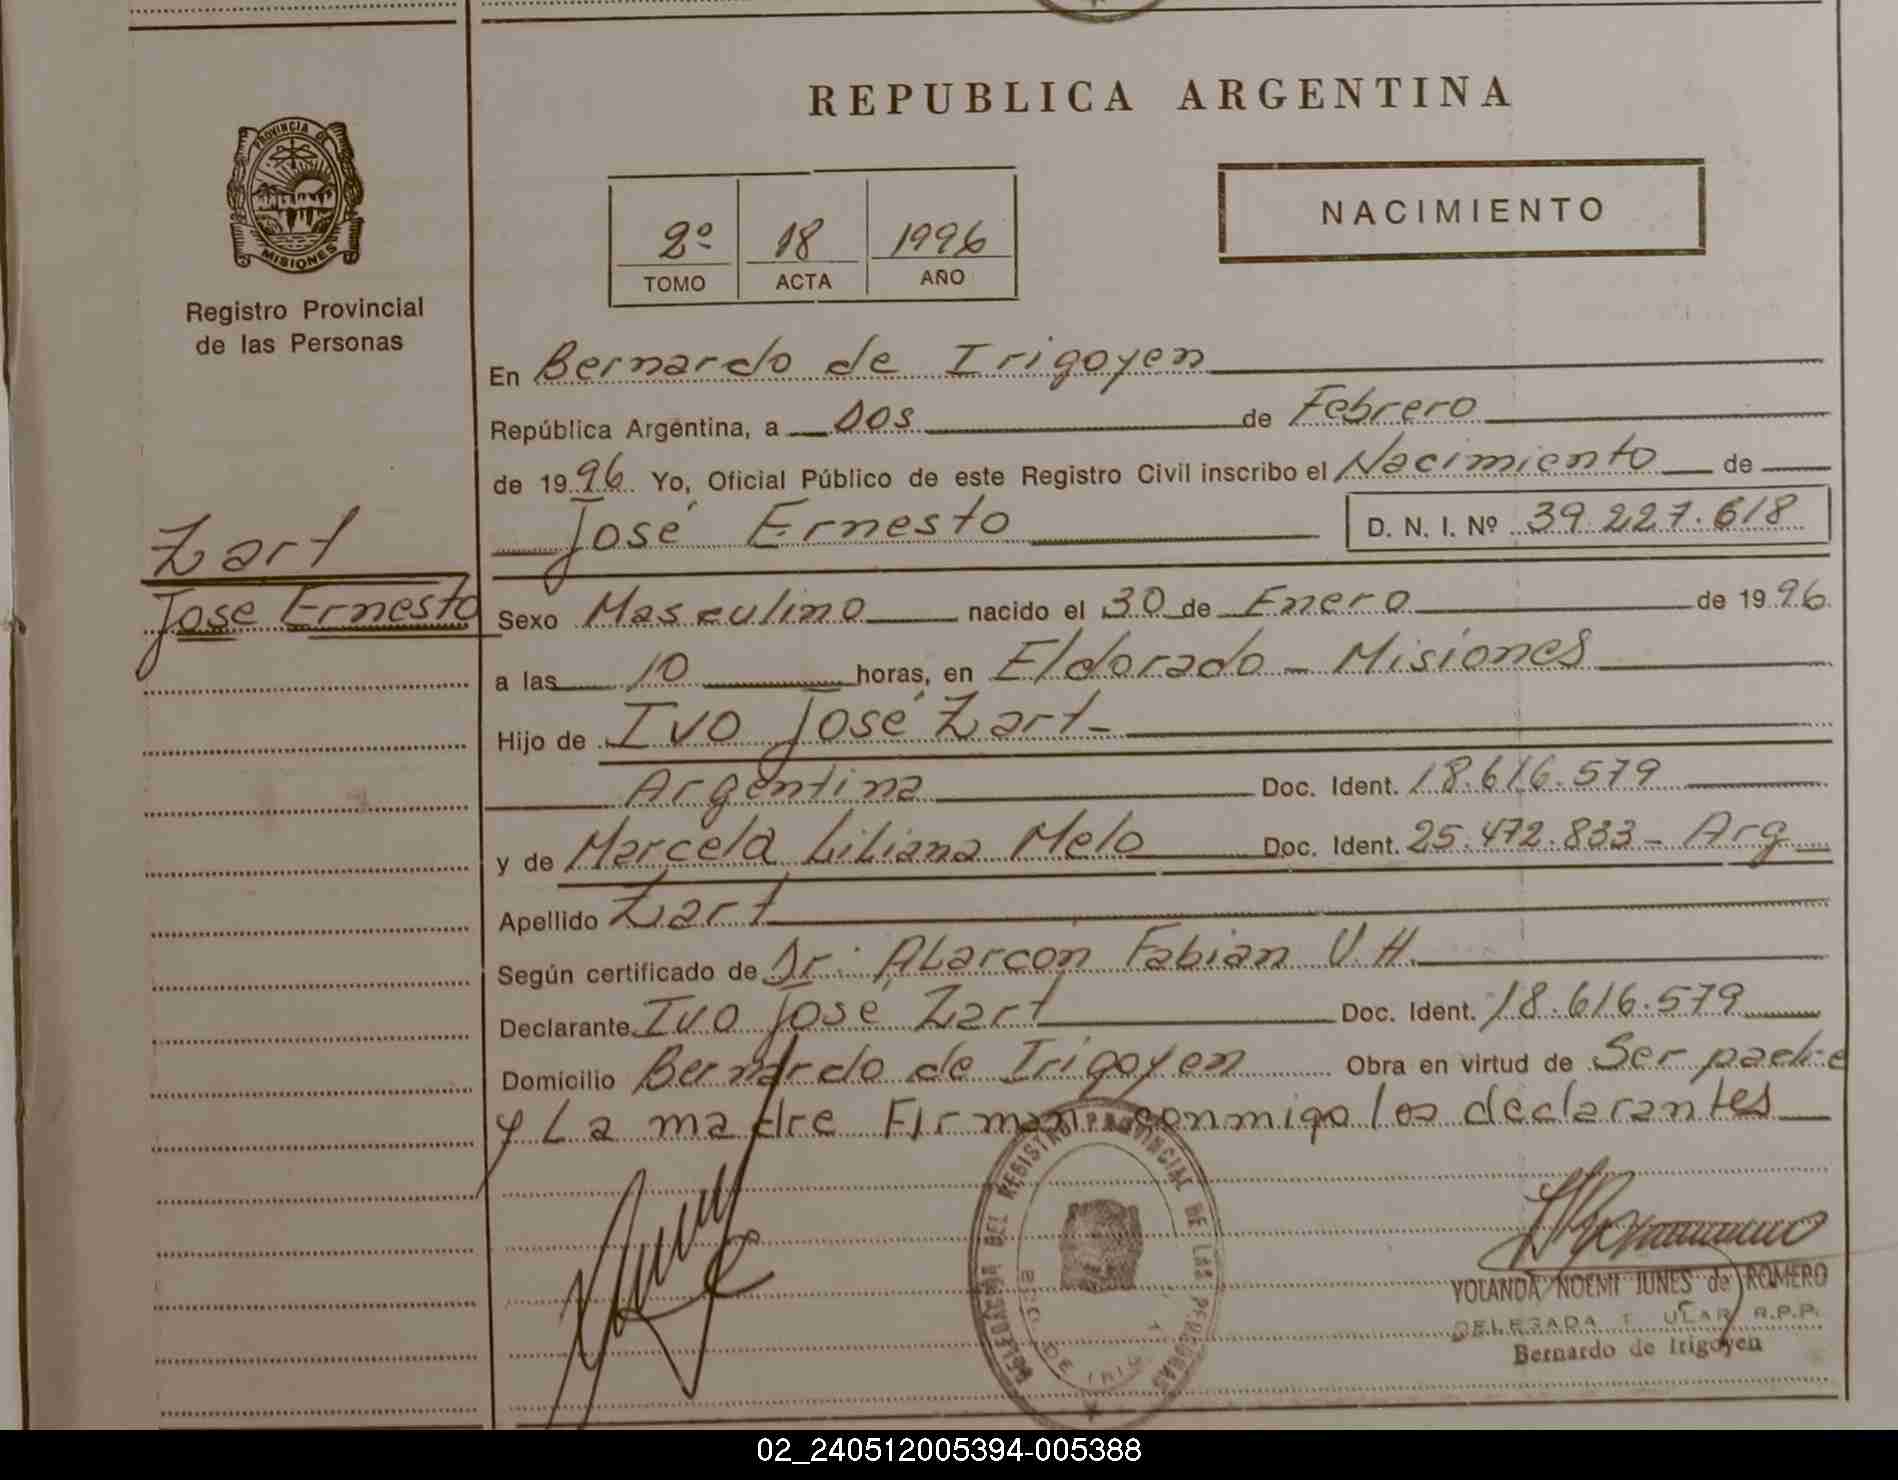 REPUBLICA ARGENTINA
PROVINCIA DE
MISIONES
Registro Provincial
de las Personas
2º 18 1996
TOMO ACTA AÑO
NACIMIENTO
En Bernardo de Irigoyen
República Argentina, a Dos de Febrero
de 1996 Yo, Oficial Público de este Registro Civil inscribo el Nacimiento de
José Ernesto D. N. I. Nº 39.227.618
Zart
Jose Ernesto
Sexo Masculino nacido el 30 de Enero de 1996
a las 10 horas, en Eldorado - Misiones
Hijo de Ivo José Zart-
Argentina Doc. Ident. 18.616.579
y de Marcela Liliana Melo Doc. Ident. 25.472.833 - Arg
Apellido Zart
Según certificado de Dr: Alarcon Fabian V.H.
Declarante Ivo José Zart Doc. Ident. 18.616.579
Domicilio Bernardo de Irigoyen Obra en virtud de Ser padre
y La madre Firman conmigo los declarantes
DEL REGISTRO PROVINCIAL DE LAS PERSONAS
YOLANDA NOEMI JUNES de ROMERO
DELEGADA R.P.P.
Bernardo de Irigoyen
02_240512005394-005388